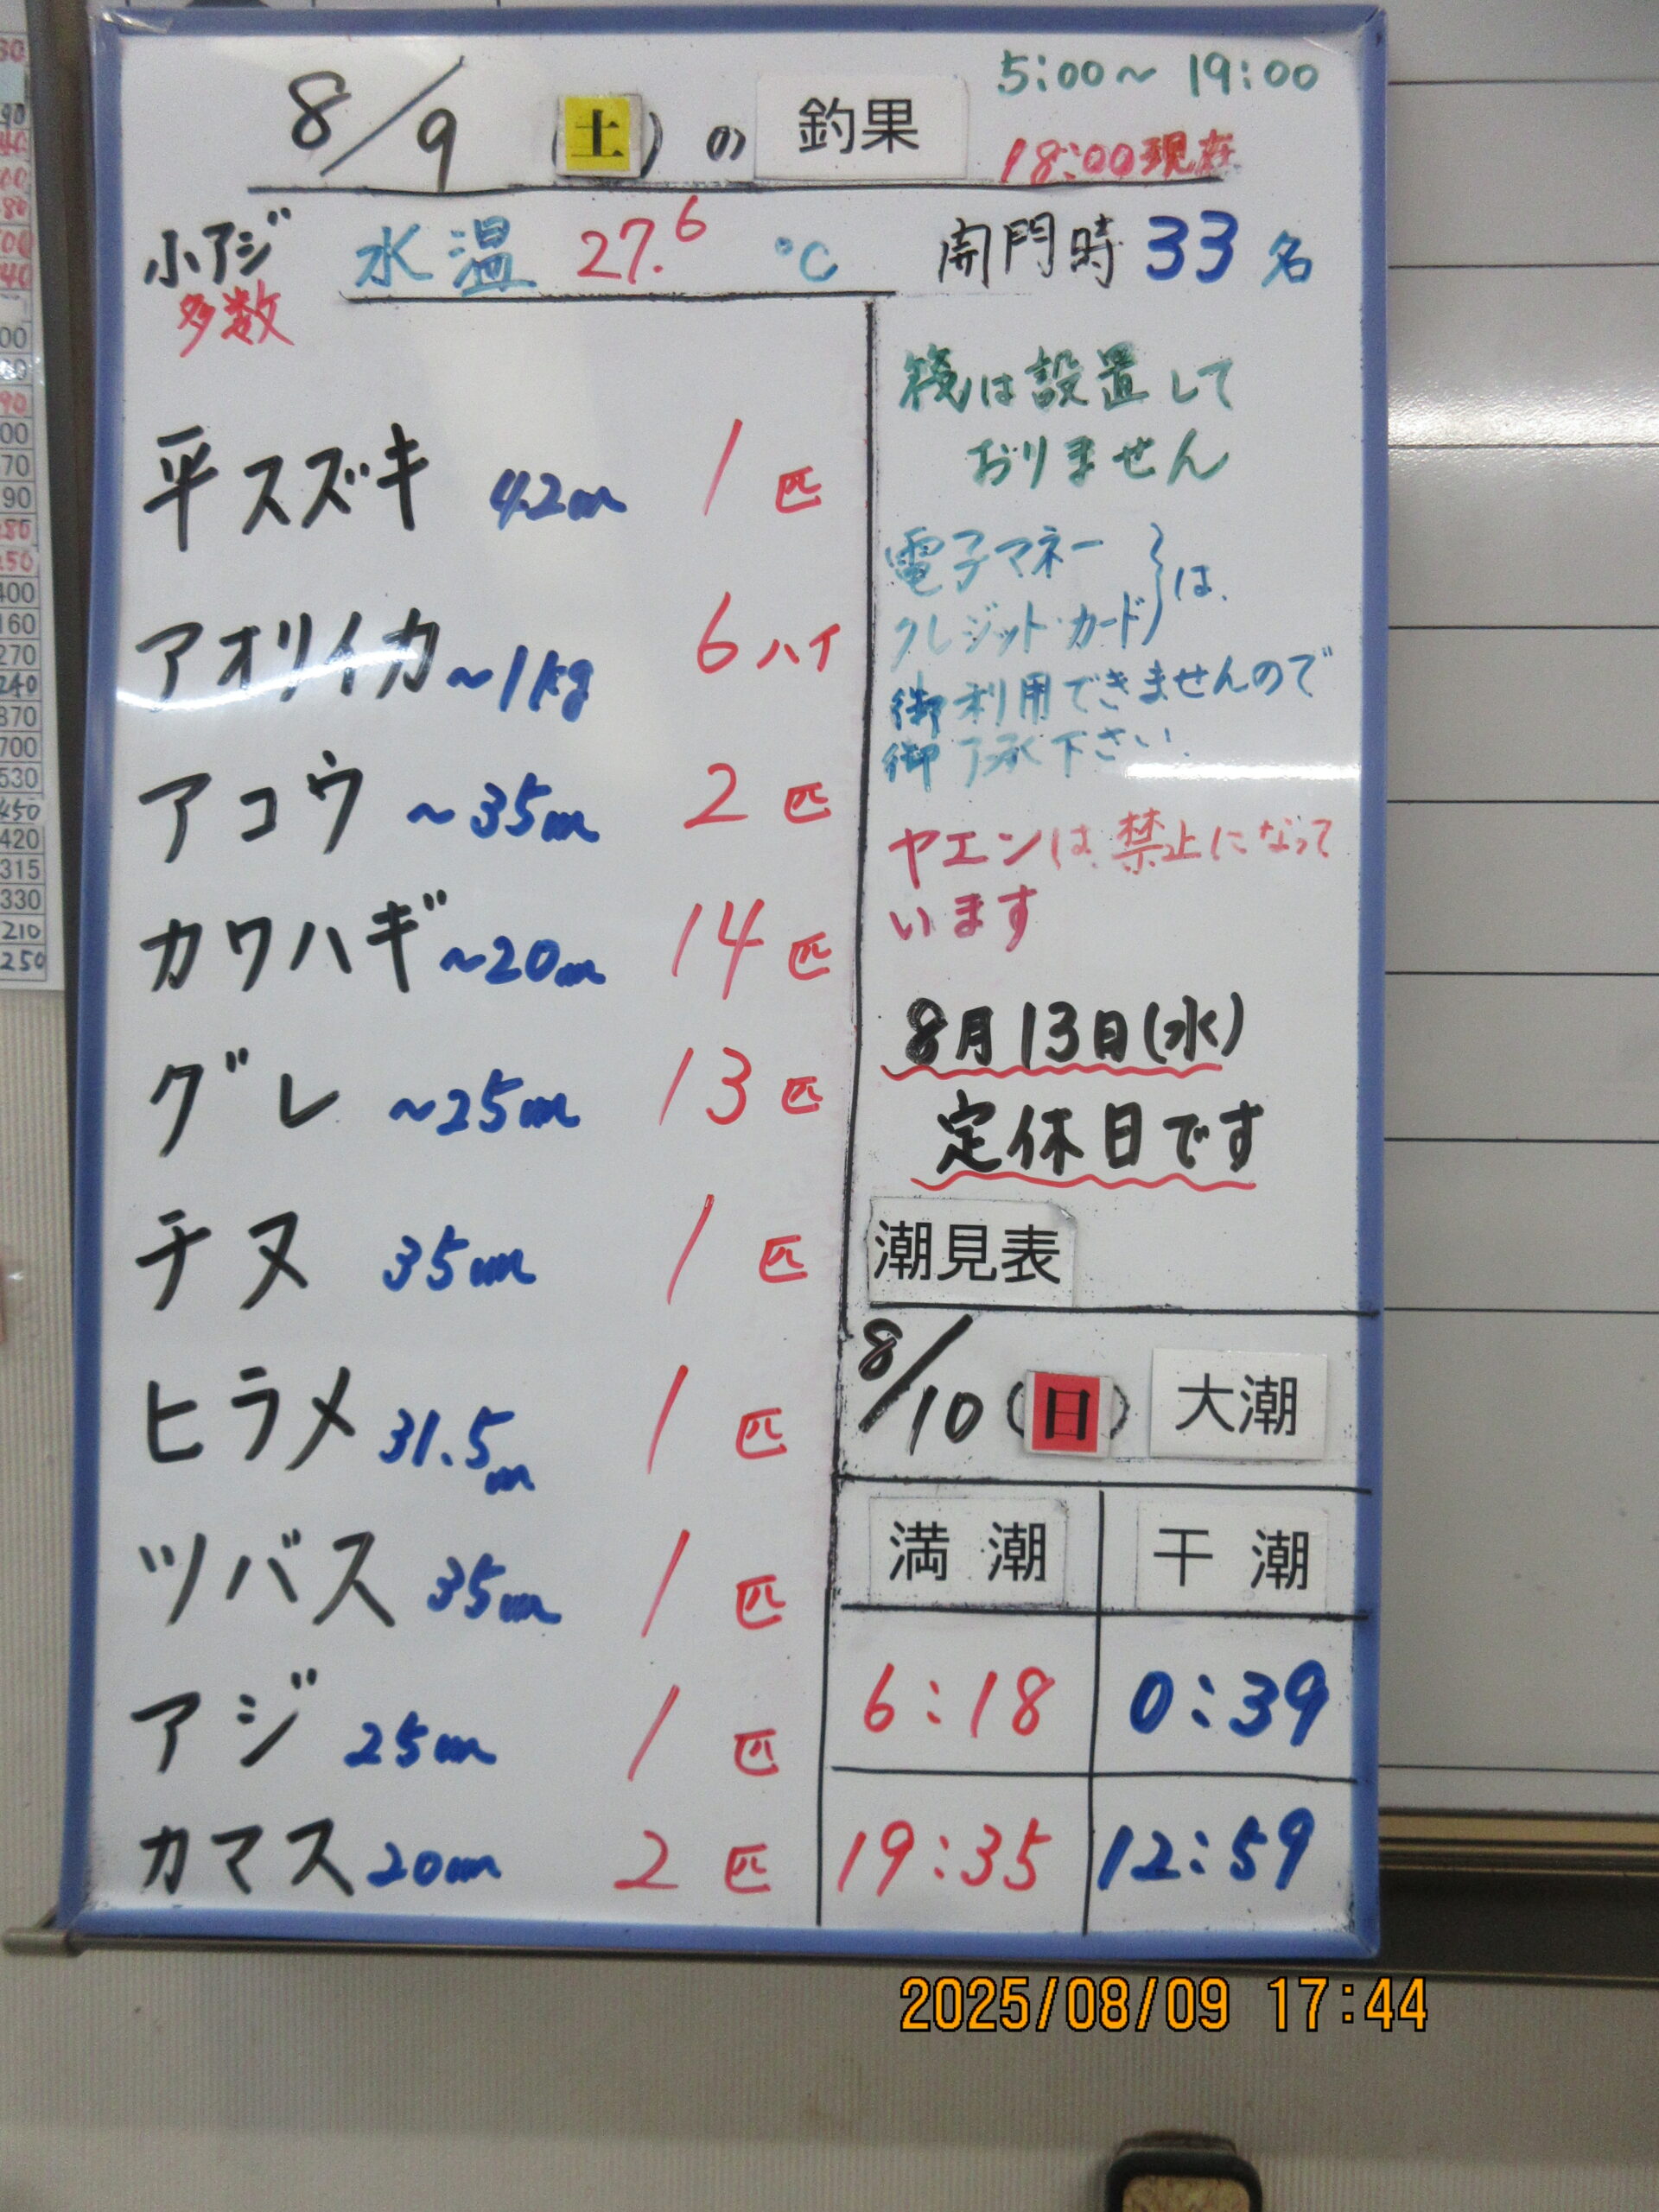 8/9 (土) の 釣果
5:00～19:00
18:00現在
小アジ
多数
水温 27.6 ℃
開門時 33 名
平スズキ 42㎝ 1 匹
アオリイカ ~1kg 6 ハイ
アコウ ~35㎝ 2 匹
カワハギ ~20㎝ 14 匹
グレ ~25㎝ 13 匹
チヌ 35㎝ 1 匹
ヒラメ 31.5㎝ 1 匹
ツバス 35㎝ 1 匹
アジ 25㎝ 1 匹
カマス 20㎝ 2 匹
筏は設置して
おりません
電子マネー
クレジット・カード}は、
御利用できませんので
御了承下さい。
ヤエンは禁止になって
います
8月13日(水)
定休日です
潮見表
8/10 (日) 大潮
満潮 干潮
6:18 0:39
19:35 12:59
2025/08/09 17:44